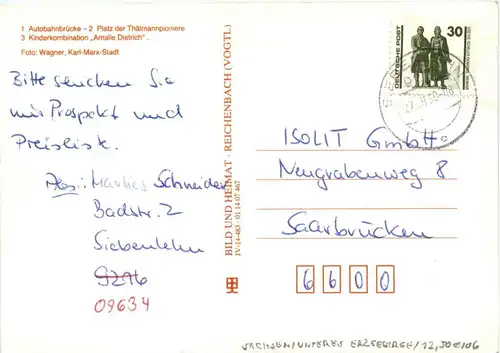 1 Autobahnbrücke – 2 Platz der Thälmannpioniere
3 Kinderkombination „Amalie Dietrich“.
Foto: Wagner, Karl-Marx-Stadt
Bitte senden Sie
mir Prospekt und
Preisliste.
Abs.: Markes Schneider
Badstr. 2
Siebenlehn
9216
09634
BILD UND HEIMAT · REICHENBACH (VOGTL)
IV-14-483 · 01 14 07 467
DEUTSCHE POST
30
ISOLIT GmbH
Neugrabenweg 8
Saarbrücken
6600
SACHSEN/UNTERES ERZGEBIRGE/12,50€/06